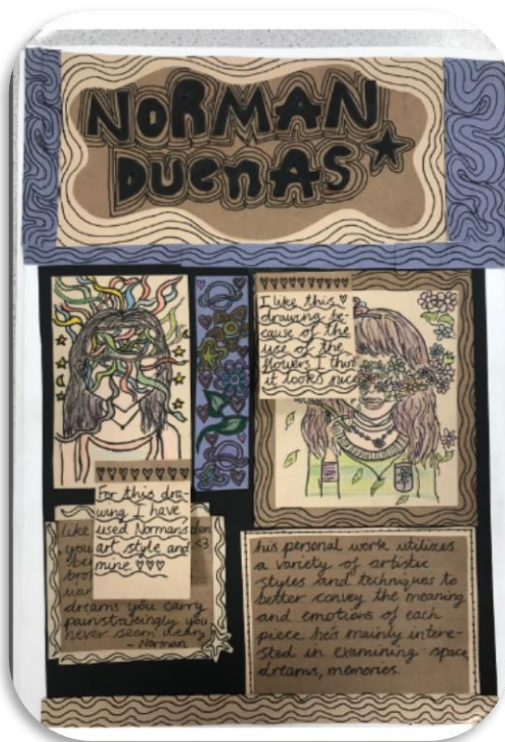 NORMAN
DUENAS
I like this ♡
drawing be-
cause of the
use of the
flowers I
it looks nice
For this dra-
wing I have
used Normans
art style and
mine ♡♡♡
like
you
<3
dreams you carry
painstakingly you
never seem
- Norman
his personal work utilizes
a variety of artistic
styles and techniques to
better convey the meaning
and emotions of each
piece he's mainly intere-
sted in examining space,
dreams, memories.